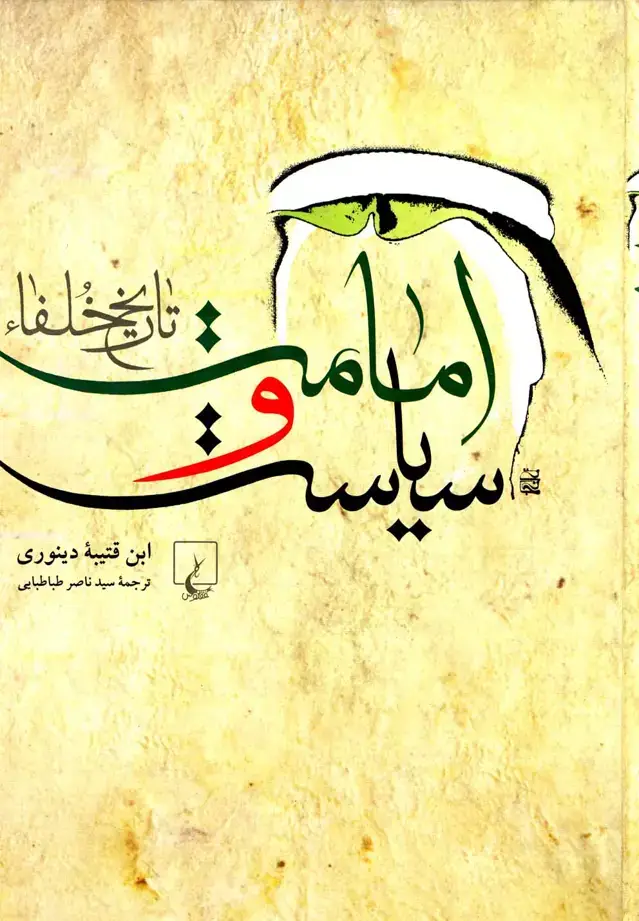 امامت
و
سیاست
تاریخ خُلفاء
ابن قتیبهٔ دینوری
ترجمهٔ سید ناصر طباطبایی
ققنوس